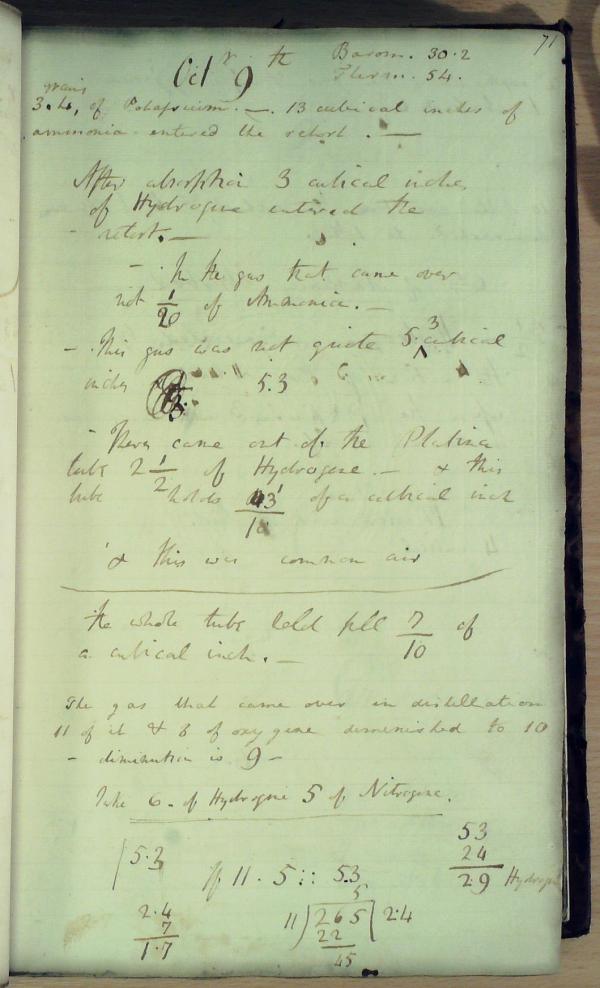 71
Octr 9th Barom. 30.2
Therm. 54.
grains
3.4, of Potassium. —. 13 cubical inches of
ammonia entered the retort. —
After absorption 3 cubical inches
of Hydrogene entered the
retort. —
- In the gas that came over
not 1/20 of Ammonia. —
- This gas was not quite 5.3 cubical
inches 5.3
- There came out of the Platina
tube 2 1/2 of Hydrogene. — & this
tube holds /10 of a cubical inch
& this was common air
the whole tube held full 7/10 of
a cubical inch. —
The gas that came over in distillation
11 of it & 8 of oxygene diminished to 10
- diminution is 9 -
Take 6. of Hydrogene 5 of Nitrogene.
5.3
If 11 . 5 :: 53
5
11) 265 ( 2.4
22
45
53
24
2.9 Hydrogene
2.4
7
1.7